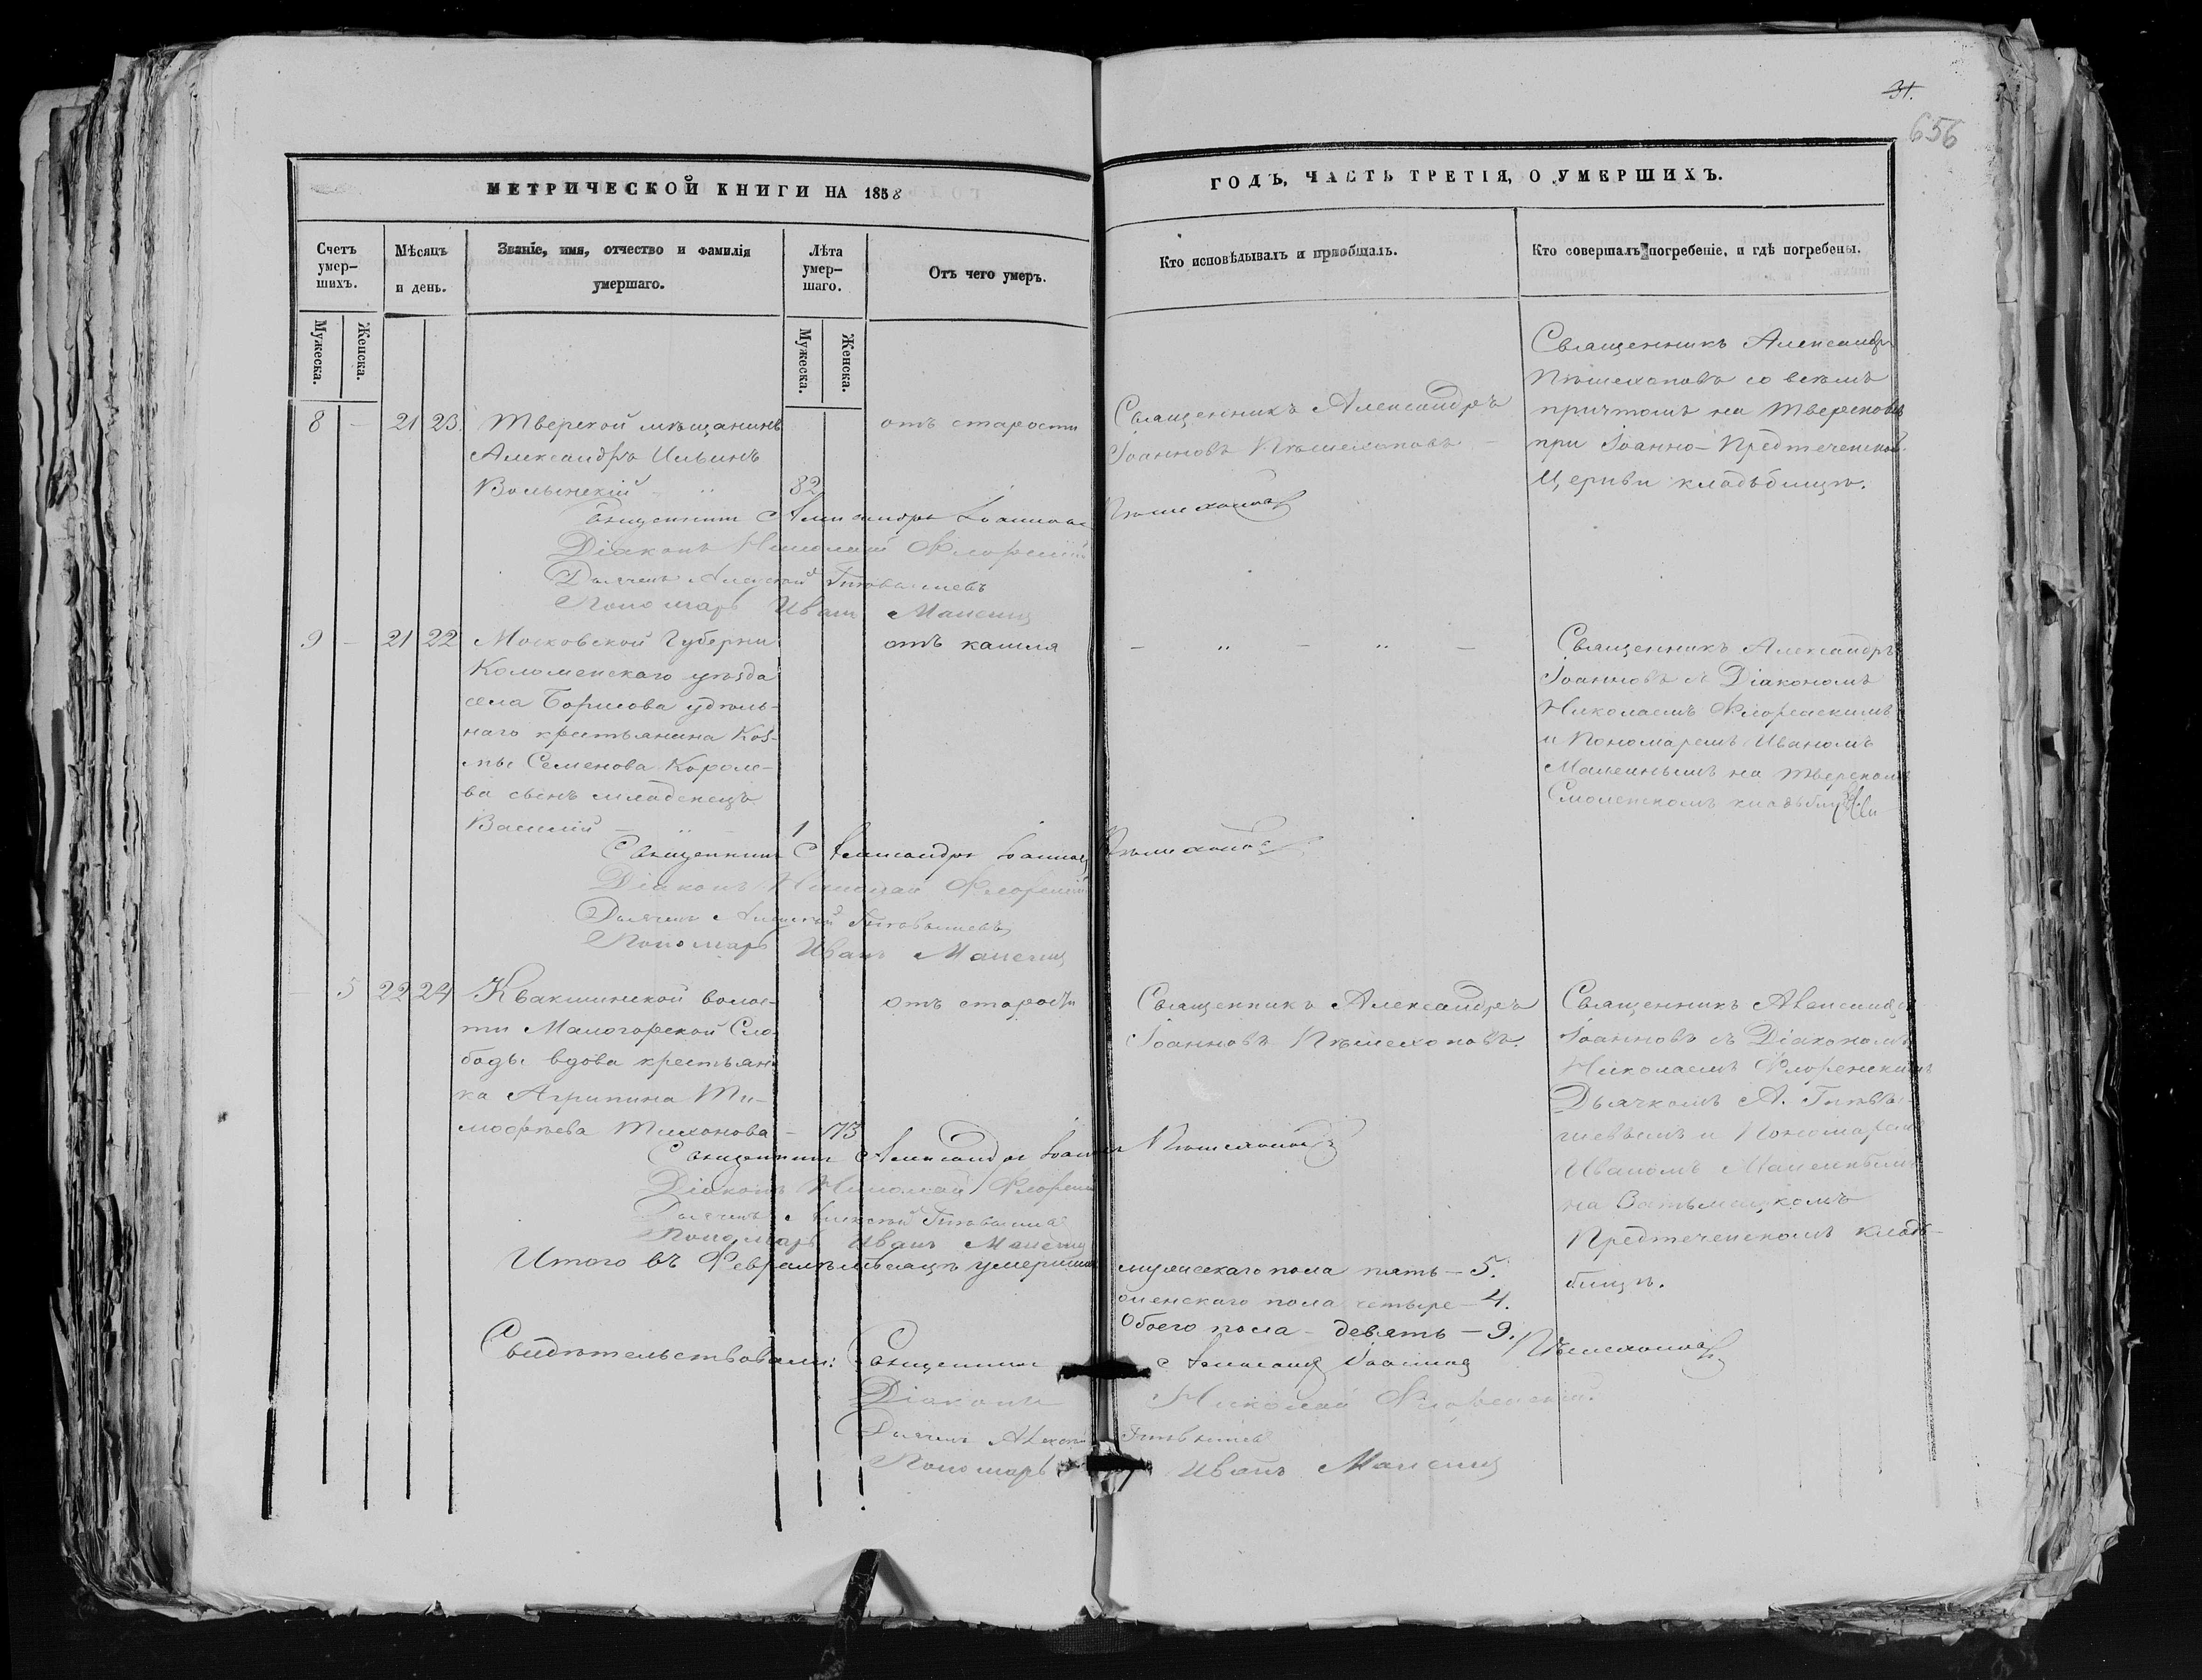 31.
656
МЕТРИЧЕСКОЙ КНИГИ НА 1858
ГОДЪ, ЧАСТЬ ТРЕТІЯ, О УМЕРШИХЪ.
Счетъ умер-шихъ.
Мѣсяцъ и день.
Званіе, имя, отчество и фамилія умершаго.
Лѣта умер-шаго.
Отъ чего умеръ.
Кто исповѣдывалъ и пріобщалъ.
Кто совершалъ погребеніе, и гдѣ погребены.
Мужеска.
Женска.
Мужеска.
Женска.
8 - 21 23.
Тверской мѣщанинъ
Александръ Ильинъ
Волынскій 82
отъ старости
Священникъ Александръ
Іоанновъ Пѣшехоновъ
Священникъ Александръ
Пѣшехоновъ со всѣмъ
причтомъ на Тверскомъ
при Іоанно-Предтеченской
Церкви кладбищѣ.
Священникъ Александръ Іоанновъ Пѣшехоновъ
Діаконъ Николай Флоренскій
Дьячекъ Алексѣй
Пономарь Иванъ
9 - 21 22
Московской Губерніи
Коломенскаго уѣзда
села Борисова удѣль-
наго крестьянина Коз-
мы Семенова Короле-
ва сынъ младенецъ
Василій 1
отъ кашля
Священникъ Александръ
Іоанновъ съ Діакономъ
Николаемъ Флоренскимъ
и Пономаремъ Иваномъ
на Тверскомъ
Смоленскомъ кладбищѣ
Священникъ Александръ Іоанновъ Пѣшехоновъ
Діаконъ Николай Флоренскій
Дьячекъ Алексѣй
Пономарь Иванъ
- 5 22 24
Квакшинской волос-
ти Малогорской Сло-
боды вдова крестьян-
ка Агрипина Ти-
мофѣева Тихонова - 73
отъ старости
Священникъ Александръ
Іоанновъ Пѣшехоновъ.
Священникъ Александръ
Іоанновъ съ Діакономъ
Николаемъ Флоренскимъ
Дьячкомъ А.
и Пономаремъ
Иваномъ
на
Предтеченскомъ клад-
бищѣ.
Священникъ Александръ Іоанновъ Пѣшехоновъ
Діаконъ Николай Флоренскій
Дьячекъ Алексѣй
Пономарь Иванъ
Итого въ Февралѣ мѣсяцѣ умершихъ мужескаго пола пять - 5.
женскаго пола четыре - 4.
Обоего пола - девять - 9.
Свидѣтельствовали: Священникъ Александръ Іоанновъ Пѣшехоновъ
Діаконъ Николай Флоренскій.
Дьячекъ Алексѣй
Пономарь Иванъ